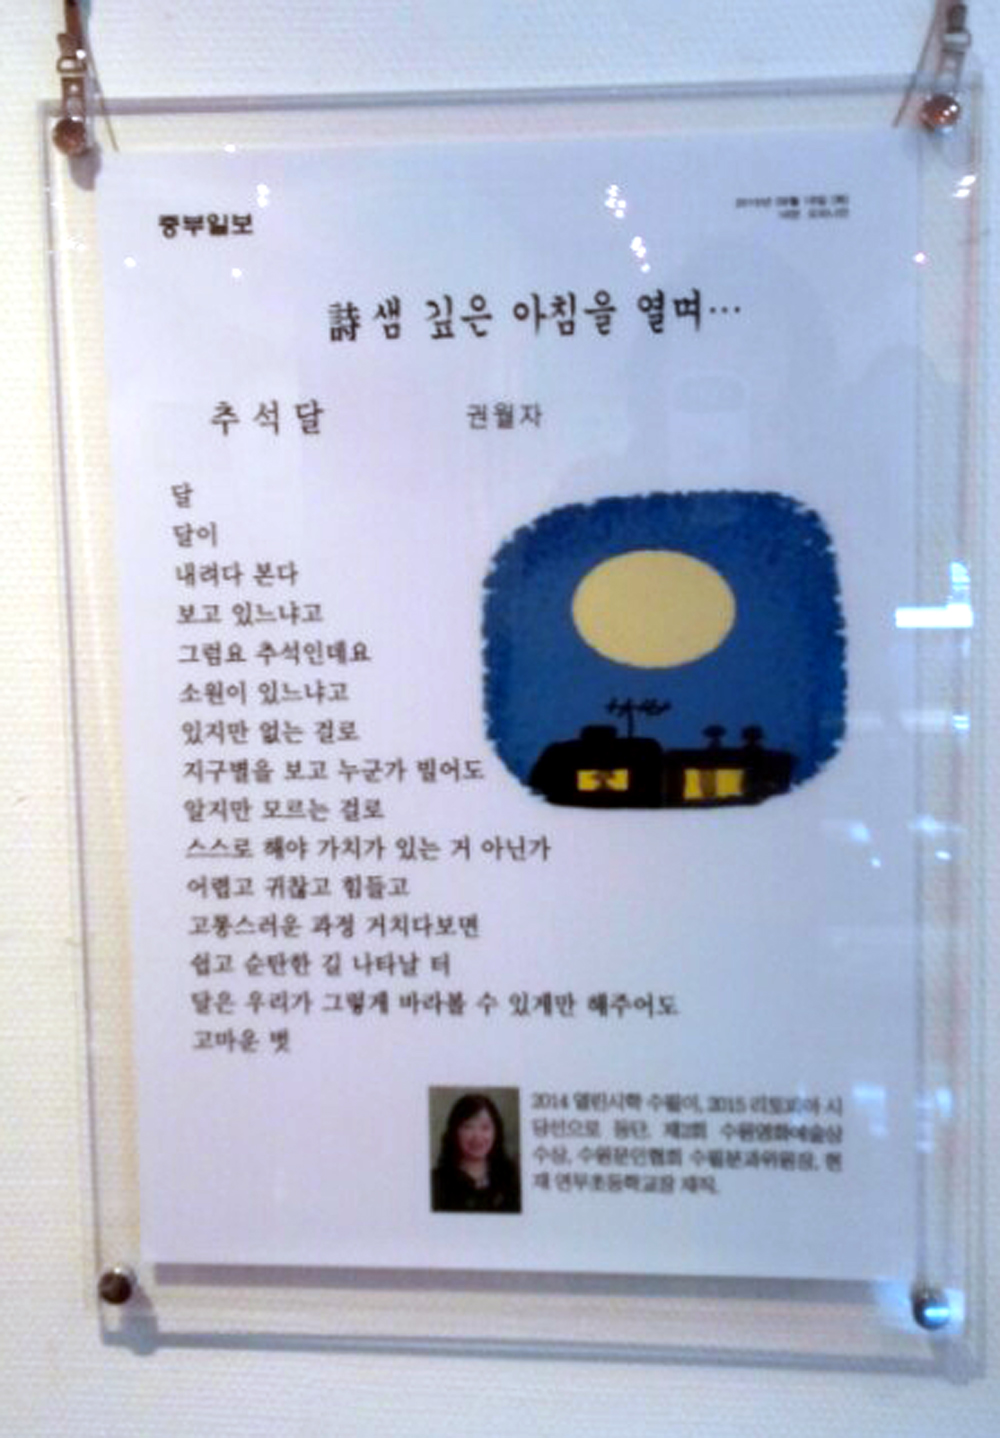 중부일보
詩샘 깊은 아침을 열며…
추석달 권월자
달
달이
내려다 본다
보고 있느냐고
그럼요 추석인데요
소원이 있느냐고
있지만 없는 걸로
지구별을 보고 누군가 빌어도
알지만 모르는 걸로
스스로 해야 가치가 있는 거 아닌가
어렵고 귀찮고 힘들고
고통스러운 과정 거치다보면
쉽고 순탄한 길 나타날 터
달은 우리가 그렇게 바라볼 수 있게만 해주어도
고마운 벗
2014 열린시학 수필이, 2015 리토피아 시
당선으로 등단. 제2회 수원영화예술상
수상, 수원문인협회 수필분과위원장, 현
재 연무초등학교장 재직.